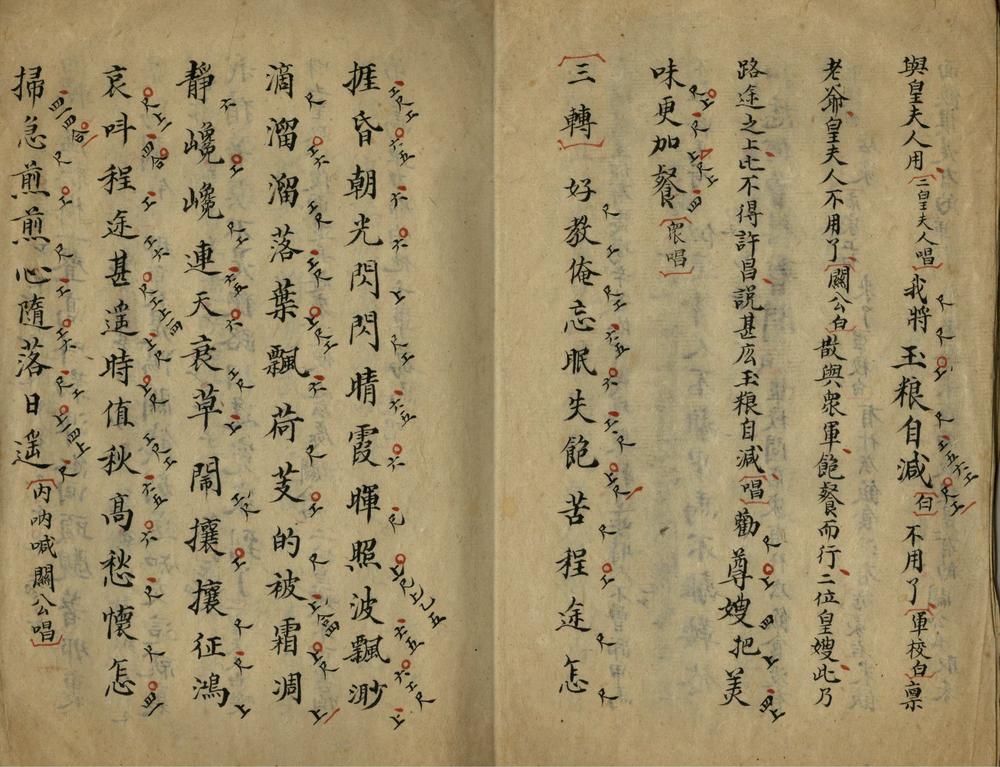 與皇夫人用二皇夫人唱我將玉粮自減白不用了軍校白禀
老爺皇夫人不用了關公白散與衆軍飽餐而行二位皇嫂此乃
路途之上比不得許昌説甚庅玉粮自減唱勸尊嫂把美
味更加餐衆唱
三轉好教俺忘眠失飽苦程途怎
捱昏朝光閃閃晴霞暉照波飄渺
滴溜溜落葉飄荷芰的被霜凋
靜巉巉連天衰草鬧攘攘征鴻
哀呌程途甚遥時值秋高愁懷怎
掃急煎煎心隨落日遥内吶喊關公唱